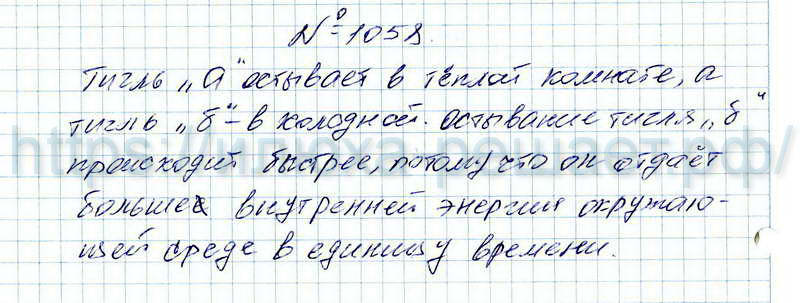 № 1058.
Тигль „а“ остывает в тёплой комнате, а
тигль „б“ – в холодной. Остывание тигля „б“
происходит быстрее, потому что он отдаёт
больше внутренней энергии окружаю-
щей среде в единицу времени.